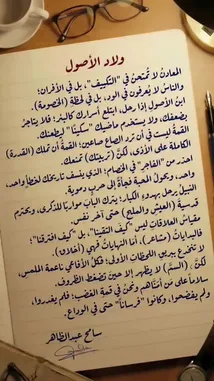 ولاد الأصول
المعادن لا تُمتحن في "التكييف"، بل في الأفران؛
والناس لا يُعرفون في الود، بل في لحظة (الخصومة).
ابن الأصول إذا رحل، ابتلع أسرارك كالبئر؛ فلا يتاجر
بضعفك، ولا يستخدم ماضيك "سكيناً" ليطعنك.
القمة ليست في أن ترد الصاع صاعين؛ القمة أن تملك (القدرة)
الكاملة على الأذى، لكنّ (تربيتك) تمنعك.
احذر من "الفاجر" في الخصام؛ الذي ينسف تاريخك لخطأ واحد،
ويحول المحبة فجأة إلى حرب دموية.
النبيل يرحل بهدوء الكبار؛ يترك الباب موارباً للذكرى، ويحترم
قدسية (العيش والملح) حتى آخر نفس.
مقياس العلاقات ليس "كيف التقينا"، بل "كيف افترقنا"؛
فالبدايات (مشاعر)، أما النهايات فهي (أخلاق).
لا تنخدع ببريق اللحظات الأولى؛ فكل الأفاعي ناعمة الملمس،
لكنّ (السُّم) لا يظهر إلا حين تضغط الظروف.
سلاماً على من أمناهم ونحن في قمة الغضب؛ فلم يغدروا
ولم يفضحوا، وكانوا "فرساناً" حتى في الوداع.
سامح عبدالظاهر